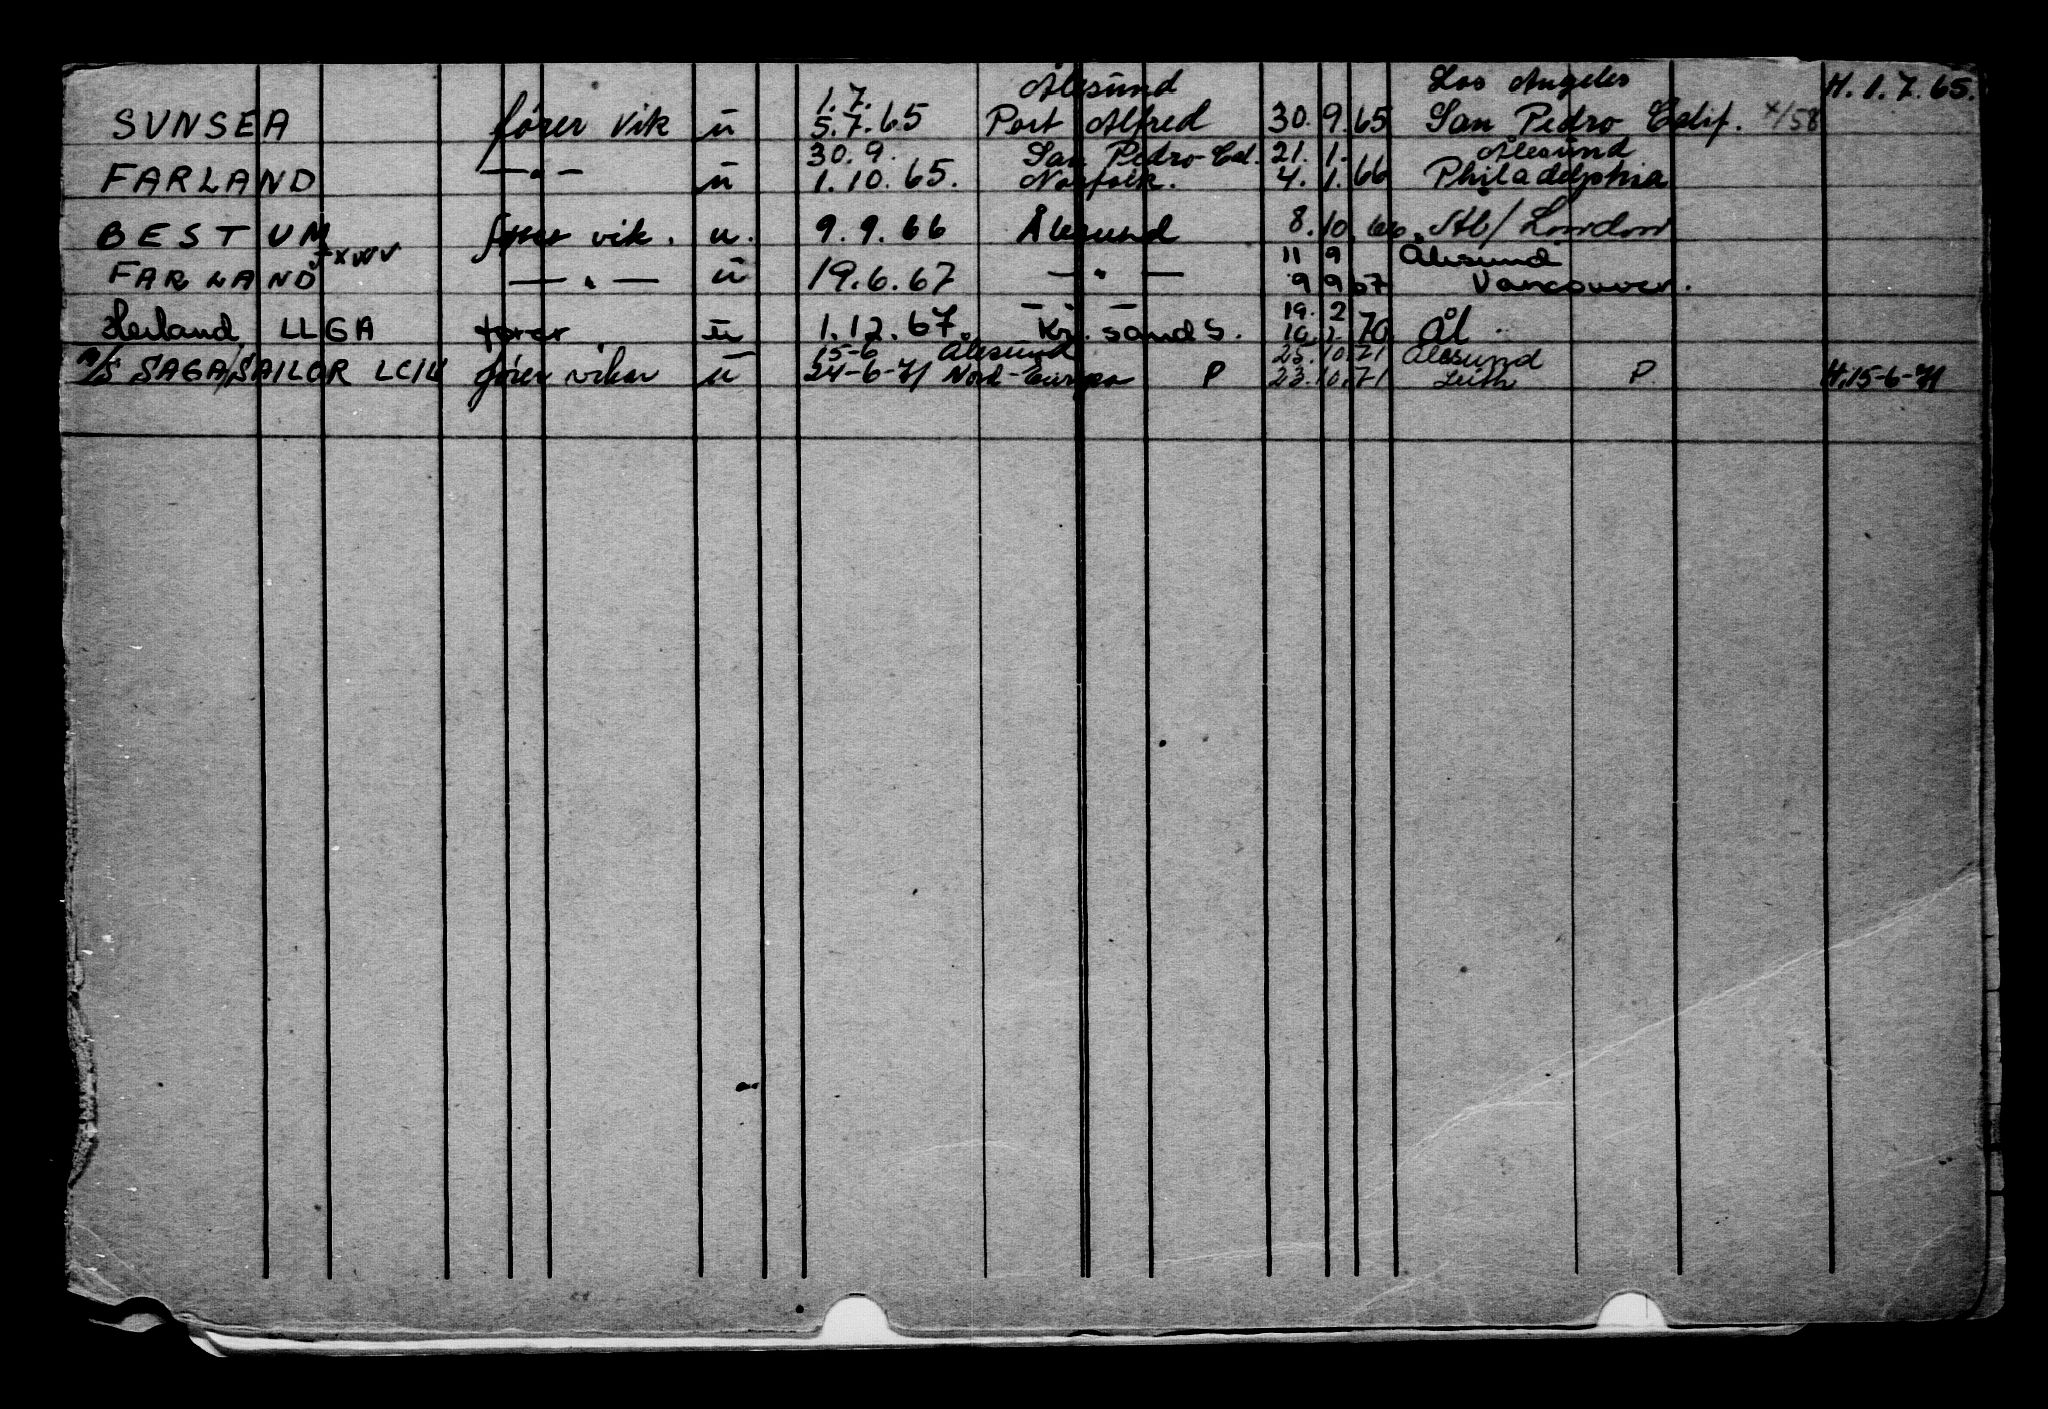 Ålesund Los Angeles H. 1.7.65.
SUNSEA fører vik ū 1.7. 5.7.65 Port Alfred 30.9.65 San Pedro Calif. x/58
30.9. San Pedro-Cal. 21.1. Ålesund
FARLAND —"— ū 1.10.65. Norfolk. 4.1.66 Philadelphia
BESTUM fører vik. u. 9.9.66 Ålesund 8.10.66. Ål/London
JXWV 11 9 Ålesund
FARLAND —"— ū 19.6.67 —"— 9 9 67 Vancouver.
— " — 19. 2
Heiland LLGA fører ū 1.12.67. Kr. sand S. 10.2.70 Ål
15-6 Ålesund 25.10.71 Ålesund
M/S SAGA/SAILOR fører vikar ū 24-6-71 Nord-Europa P 23.10.71 Leith P. H.15-6-71